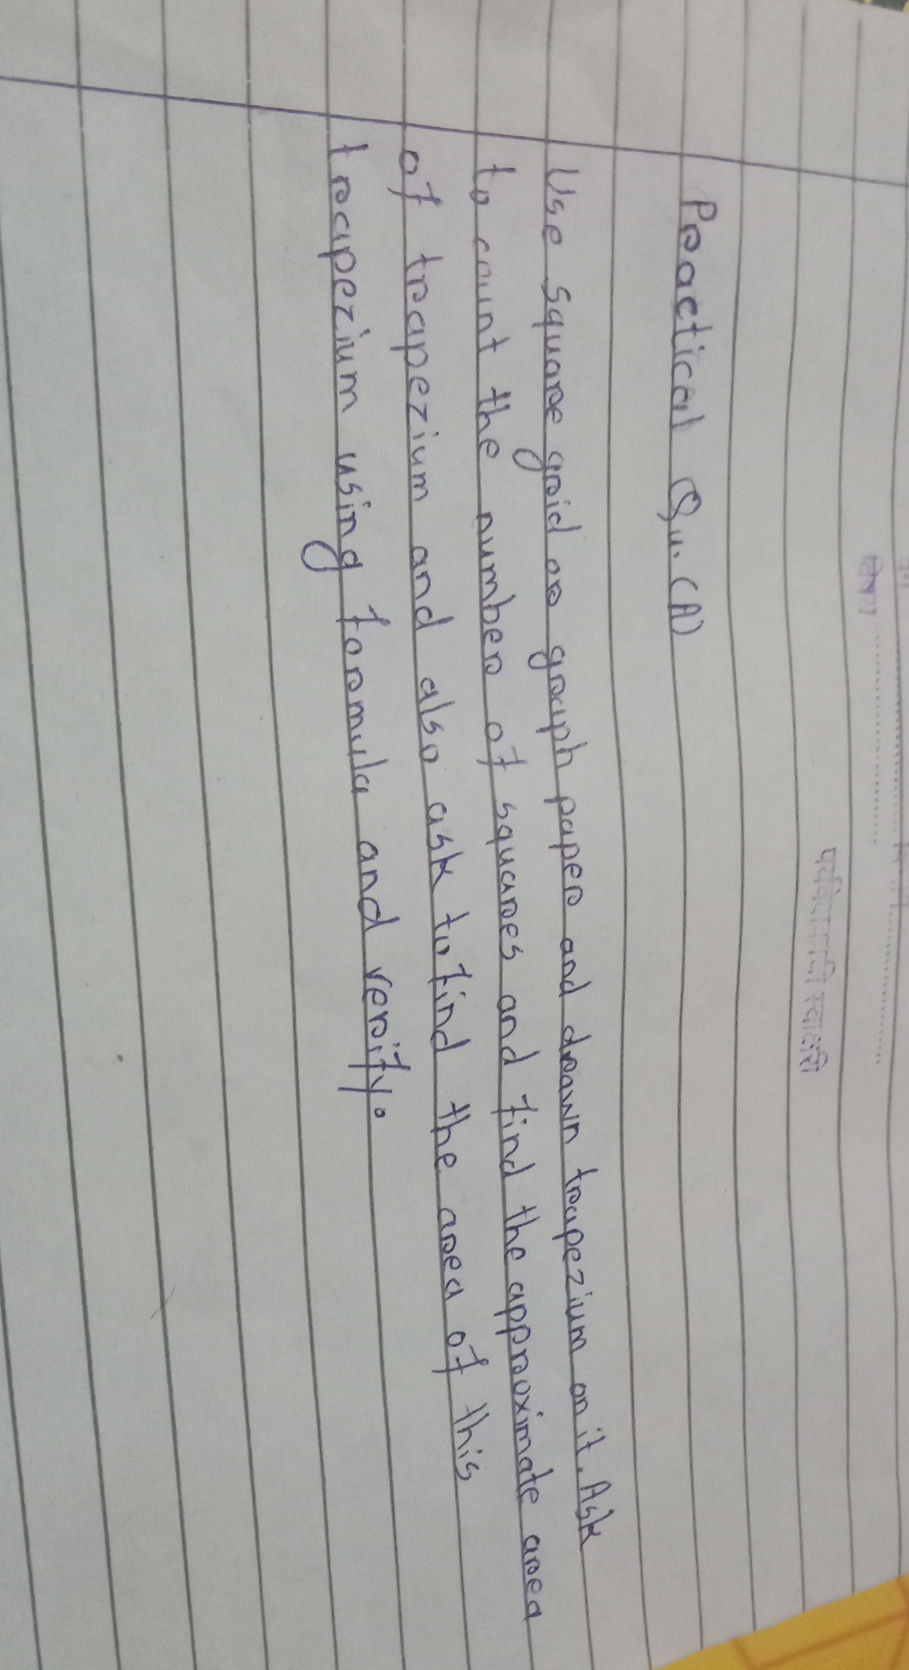 Practical Qu. (A)
Use square grid or graph paper and drawn trapezium on it. Ask
to count the number of squares and find the approximate area
of trapezium and also ask to find the area of this
trapezium using formula and verify.